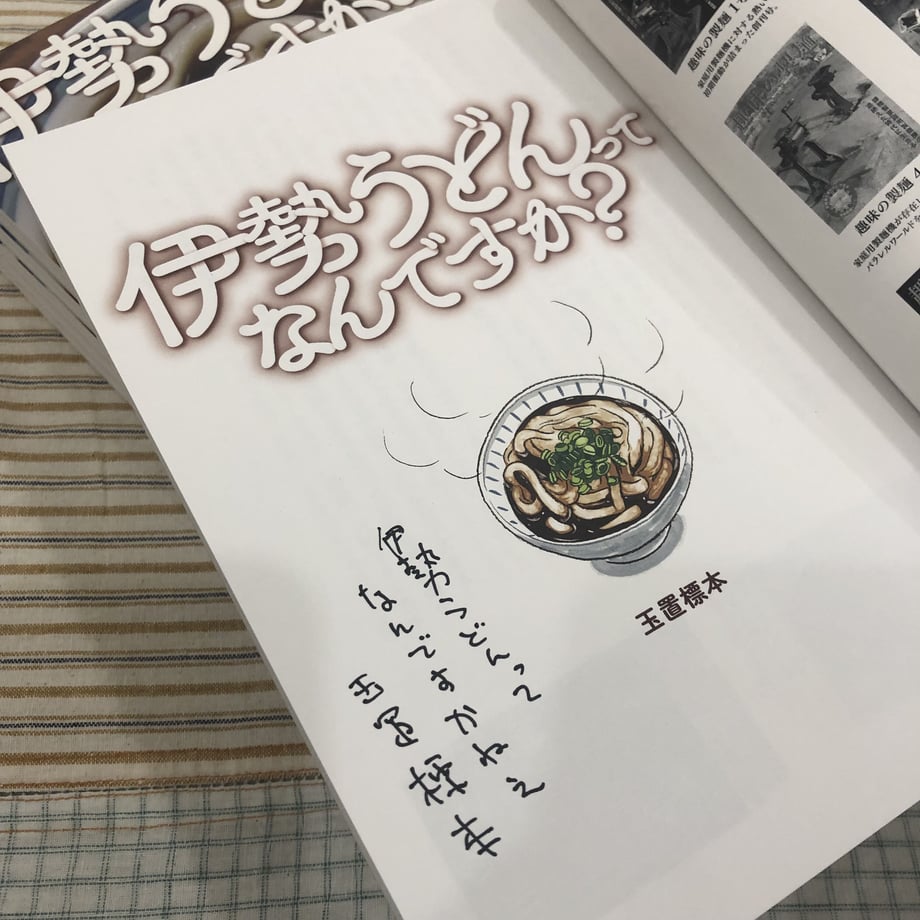 伊勢う
ですか
伊勢うどんって
なんですか?
玉置標本
伊勢うどんって
なんですかねえ
玉置標本
趣味の製麺 1
家庭用製麺機に対する熱い
初期衝動が詰まった創刊号。
趣味の製麺 4
家庭用製麺機が存在し
パラレルワールド